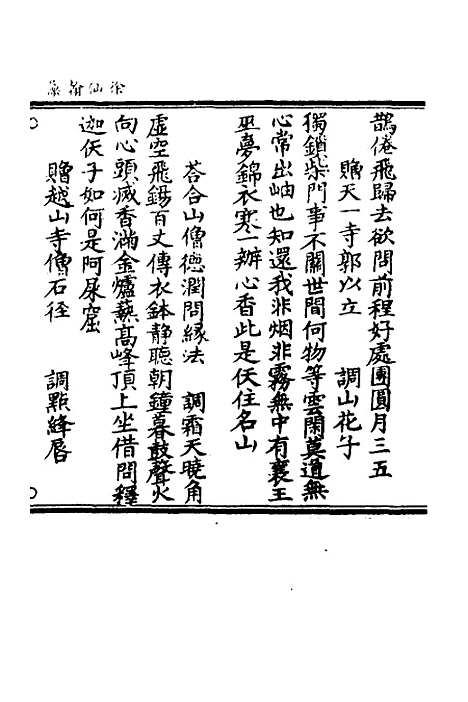 徐仙翰藻
鵲倦飛歸去欲問前程好處團圓月三五
贈天一寺郭以立　調山花子
獨鎖柴門事不關世間何物等雲閑莫道無
心常出岫也知還我非烟非霧無中有襄王
巫夢錦衣寒一辦心香此是仸住名山
荅合山僧德潤問緣法　調霜天曉角
虛空飛錫百丈傳衣鉢静聽朝鐘暮鼓聲火
向心頭滅香滿金爐爇高峰頂上坐借問釋
迦仸子如何是阿屎窟
贈越山寺僧石徑　調點絳唇